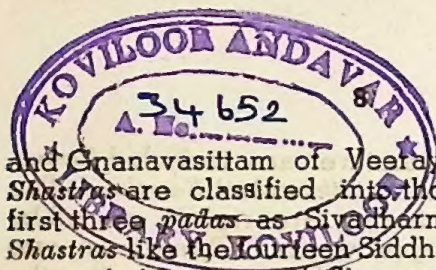 KOVILOOR ANDAVAR
8
34652
A. No.
LIBRARY, KOVILOOR
and Gnanavasittam of Veera
Shastras are classified into
first three padas as Sivadharm
Shastras like the fourteen Siddh